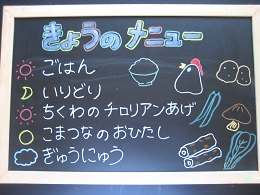 きょうのメニュー
ごはん
いりどり
ちくわのチロリアンあげ
こまつなのおひたし
ぎゅうにゅう